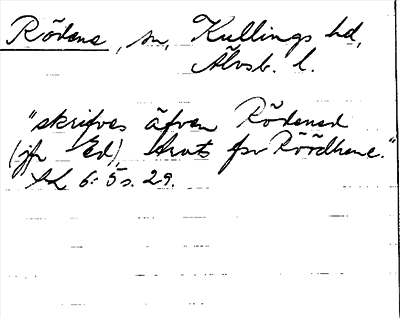 Rödene, sn, Kullings hd,
Älvsb. l.
"skrifves äfven Rödened
(jfr Ed), livats fsv Röödhene."
AL 6: 5 s. 29.